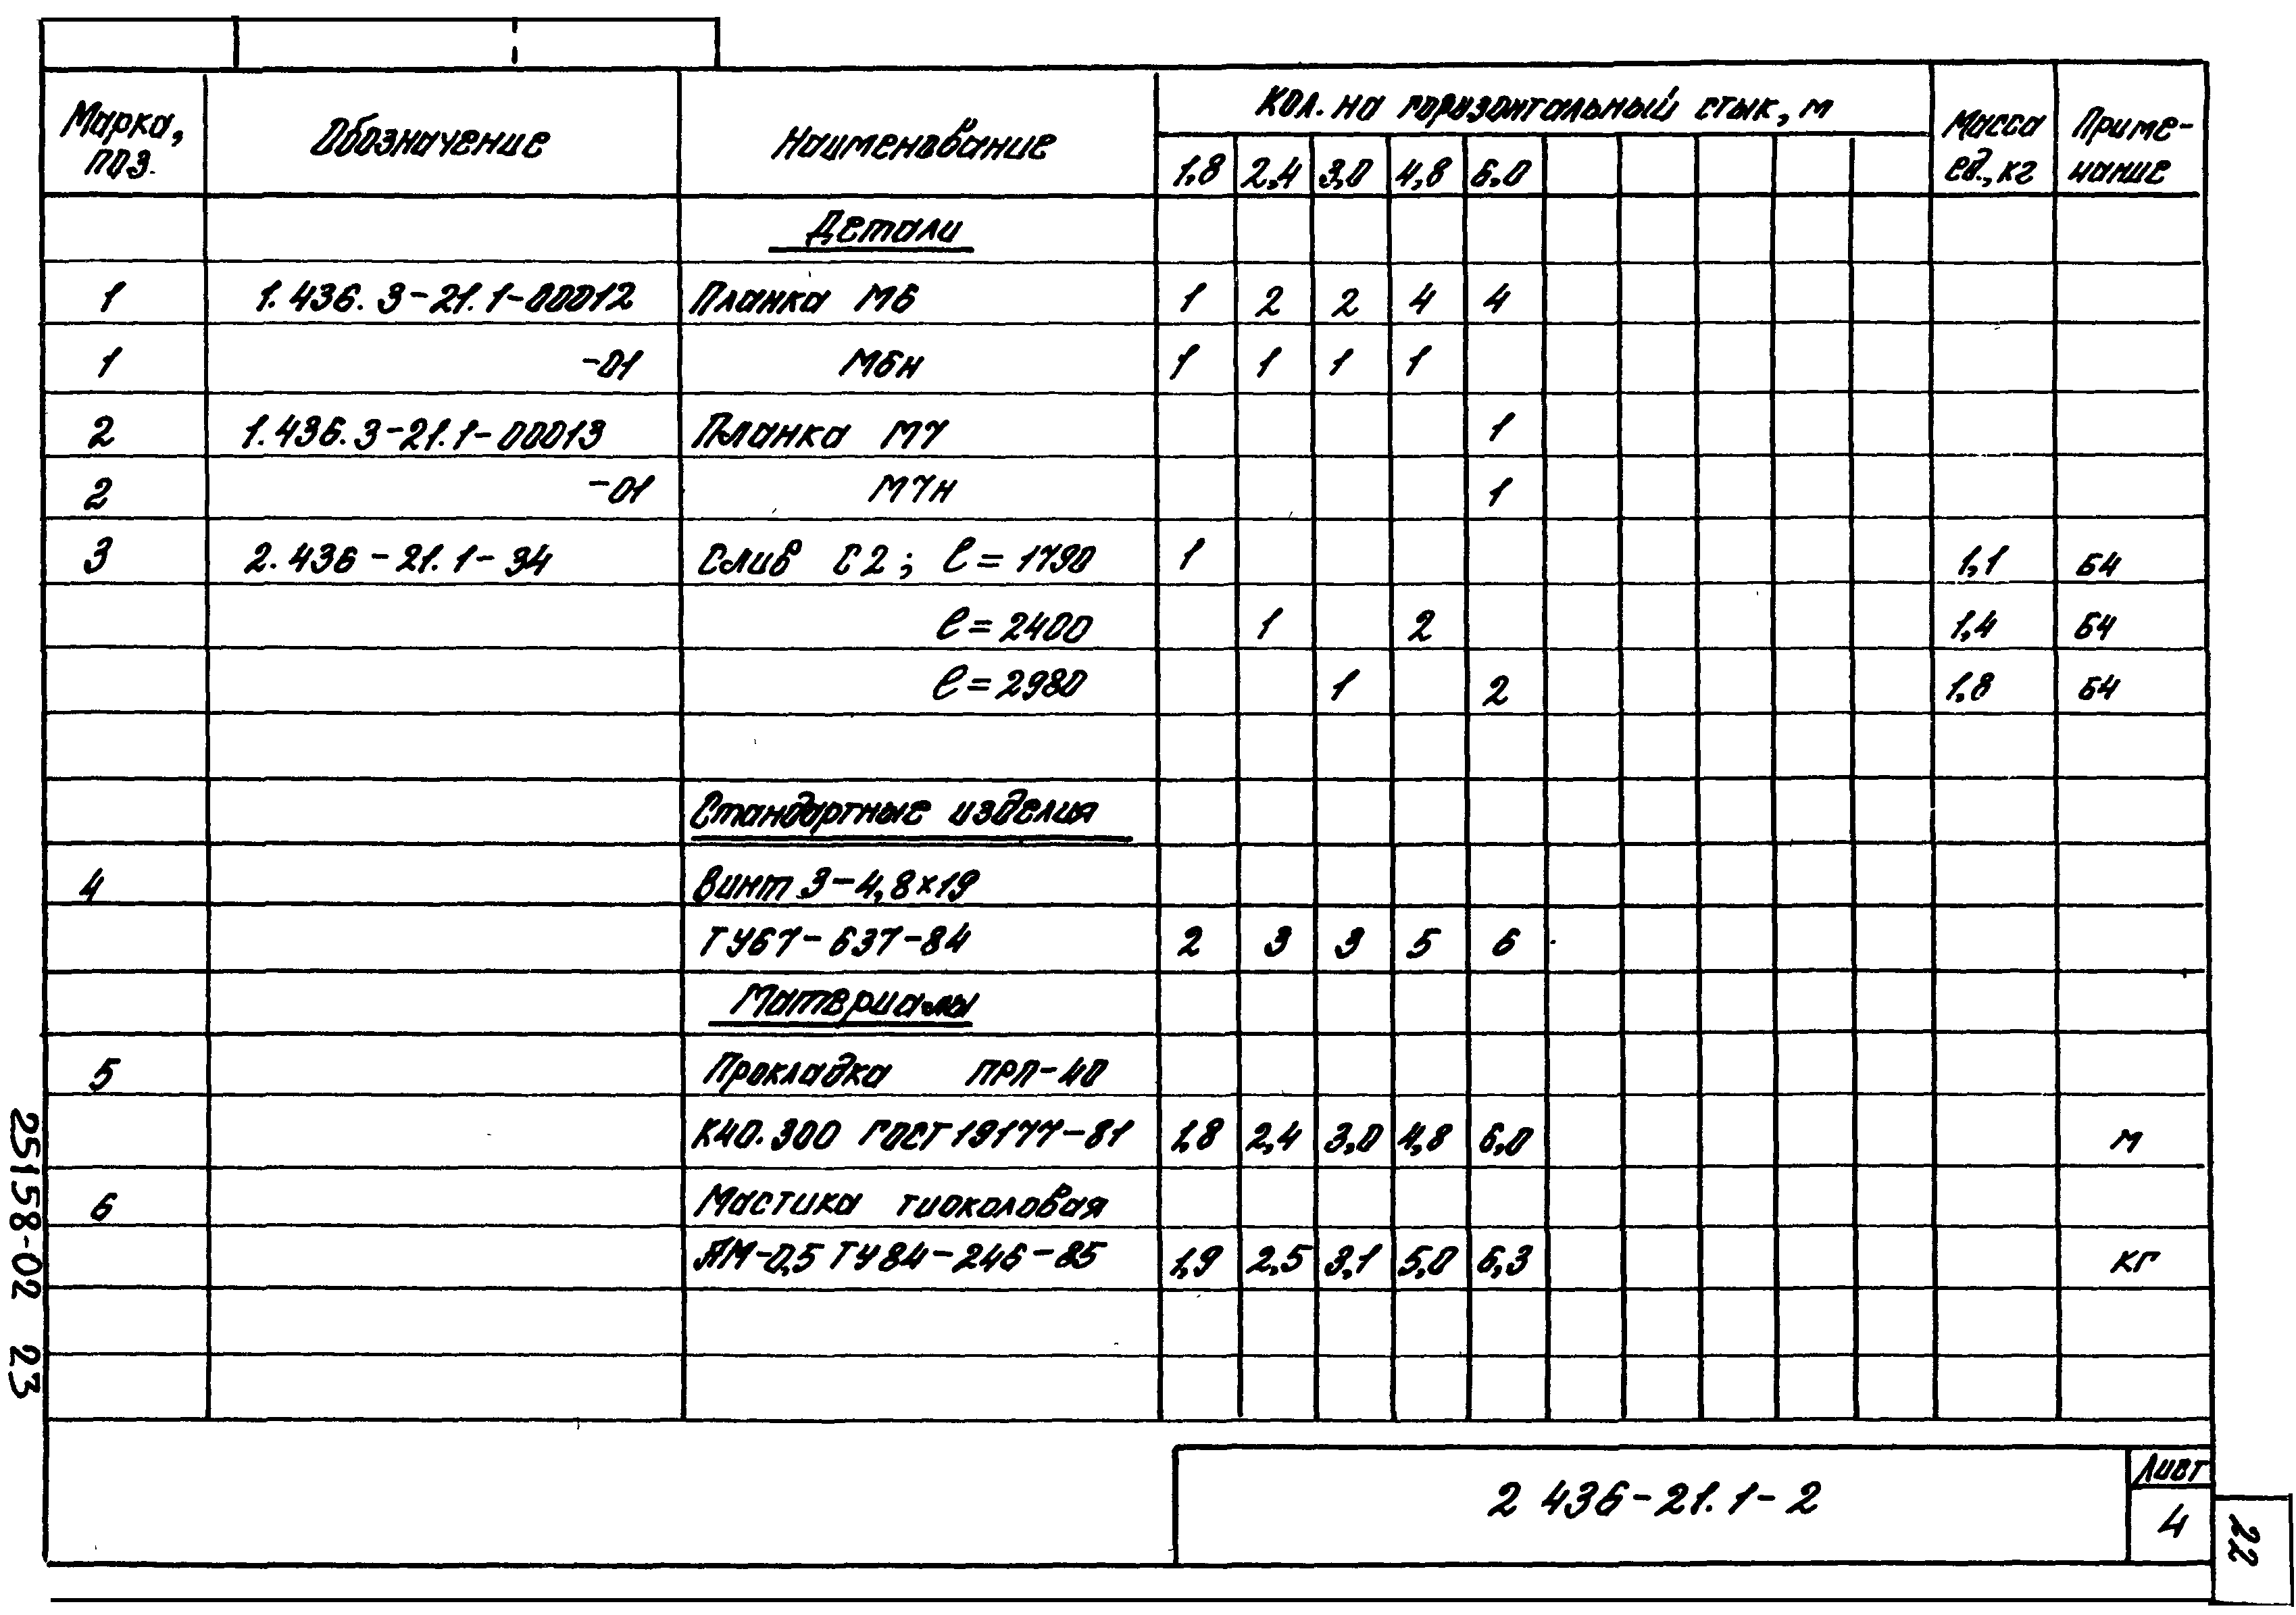 Марка, поз. Обозначение Наименование Кол. на горизонтальный стык, м Масса ед., кг Приме-чание
1,8 2,4 3,0 4,8 6,0
Детали
1 1.436.3-21.1-00012 Планка М6 1 2 2 4 4
1 -01 М6н 1 1 1 1
2 1.436.3-21.1-00013 Планка М7 1
2 -01 М7н 1
3 2.436-21.1-34 Слив С2; ℓ=1790 1 1,1 БЧ
ℓ=2400 1 2 1,4 БЧ
ℓ=2980 1 2 1,8 БЧ
Стандартные изделия
4 Винт 3-4,8×19
ТУ67-637-84 2 3 3 5 6
Материалы
5 Прокладка ПРП-40
К40.300 ГОСТ 19177-81 1,8 2,4 3,0 4,8 6,0 м
6 Мастика тиоколовая
АМ-0,5 ТУ84-246-85 1,9 2,5 3,1 5,0 6,3 кг
2 436-21.1-2
Лист
4
22
25158-02 23